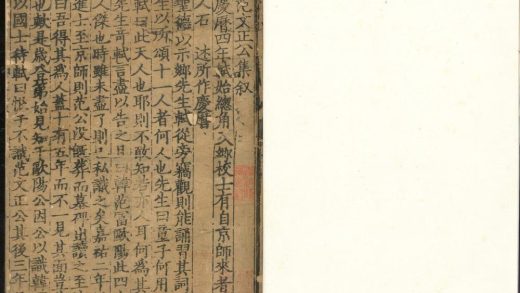 文正公集叙
慶曆四年軾始總角入鄉校士有自京師來者
人石述所作慶曆
聖德以示鄉先生軾從旁竊觀則能誦習其詞
生以所頌十一人者何人也先生曰童子何用
軾曰此天人也耶則不敢知若亦人耳何為其
先生奇軾言盡以告之且曰韓范富歐陽此四
人傑也時雖未盡了則已私識之矣嘉祐二年
進士至京師則范公没既葬而墓碑出讀之至
曰吾得其為人蓋十有五年而不一見其面豈
也歟是歲登第始見知于歐陽公因公以識韓
以國士待軾曰恨子不識范文正公其後三年